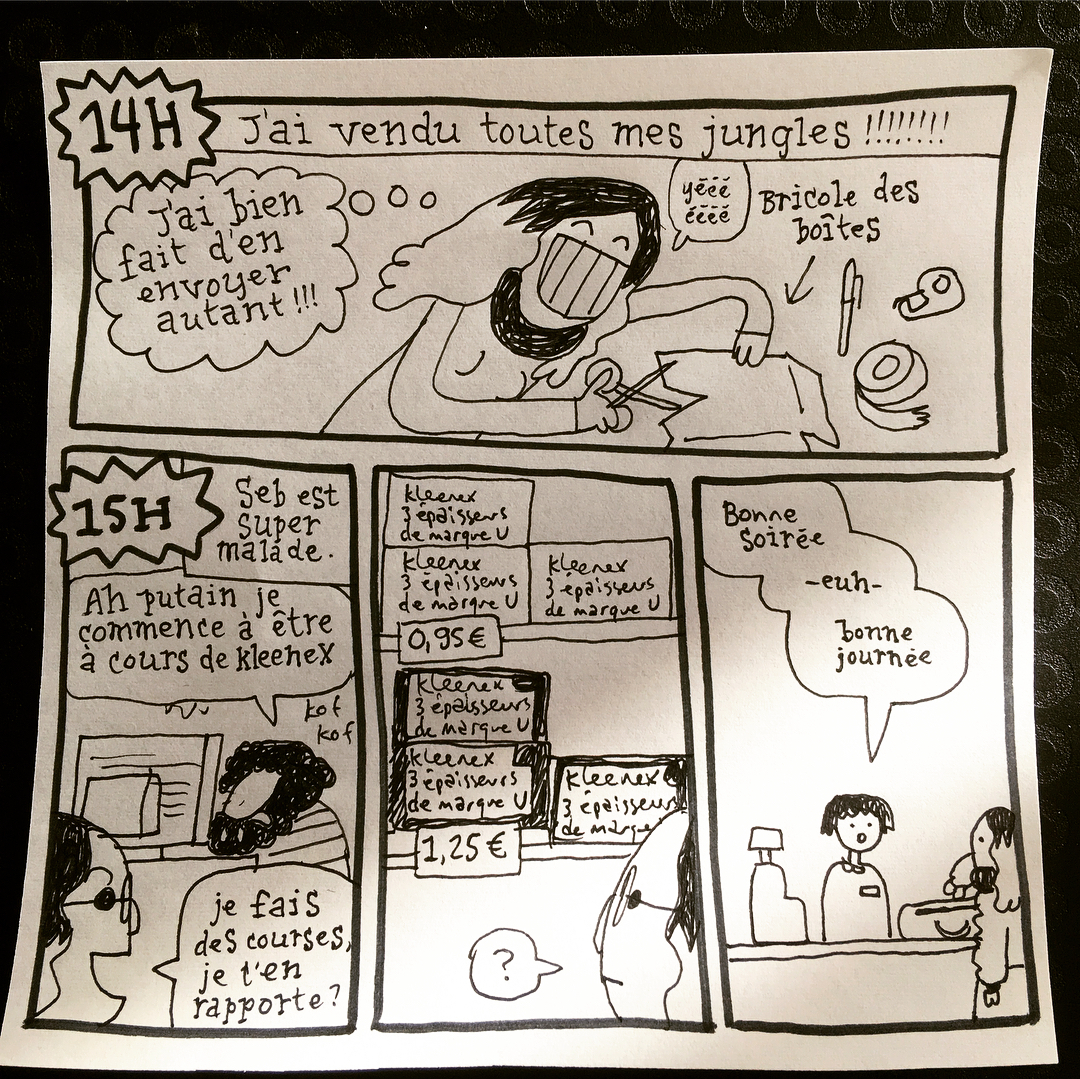 14H
J'ai vendu toutes mes jungles !!!!!!!!
J'ai bien
fait d'en
envoyer
autant !!!
yééé
éééé
Bricole des
boîtes
15H
Seb est
super
malade.
Ah putain je
commence à être
à cours de kleenex
kof
kof
je fais
des courses,
je t'en
rapporte ?
kleenex
3 épaisseurs
de marque U
kleenex
3 épaisseurs
de marque U
kleenex
3 épaisseurs
de marque U
0,95€
kleenex
3 épaisseurs
de marque U
kleenex
3 épaisseurs
de marque U
kleenex
3 épaisseurs
de marque
1,25€
?
Bonne
soirée
-euh-
bonne
journée